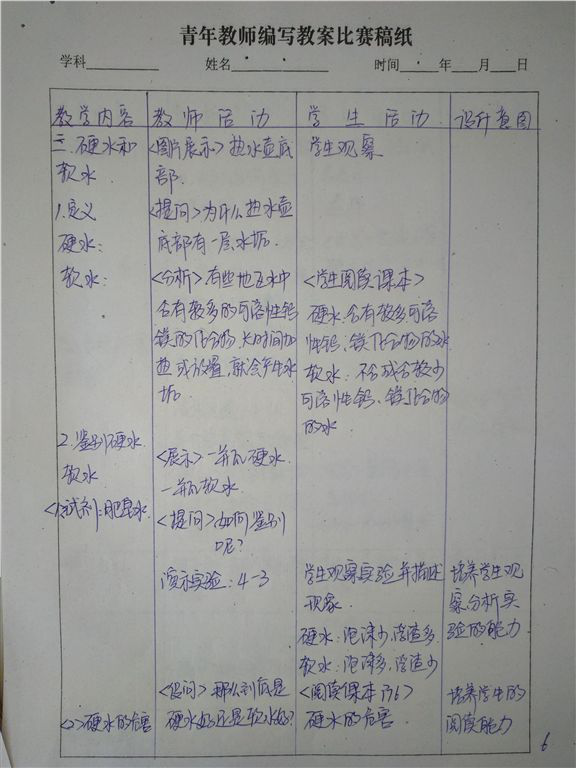 青年教师编写教案比赛稿纸
学科 姓名 时间 年 月 日
教学内容 教师活动 学生活动 设计意图
三.硬水和 <图片展示>热水壶底 学生观察
软水 部.
1.定义 <提问>为什么热水壶
硬水: 底部有一层水垢.
软水: <分析>有些地区水中 <学生阅读课本>
含有较多的可溶性钙 硬水:含有较多可溶
镁的化合物.长时间加 性钙、镁化合物的水
热或放置,就会产生水 软水:不含或含较少
垢. 可溶性钙、镁化合物
的水
2.鉴别硬水
软水 <展示>一瓶硬水
一瓶软水.
<1>试剂:肥皂水 <提问>如何鉴别
呢?
演示实验:4-3 学生观察实验并描述 培养学生观
现象. 察.分析实
硬水:泡沫少,浮渣多. 验的能力
软水:泡沫多,浮渣少
<设问>那么到底是 <阅读课本P76> 培养学生的
<2>硬水的危害 硬水好还是软水好? 硬水的危害 阅读能力
6